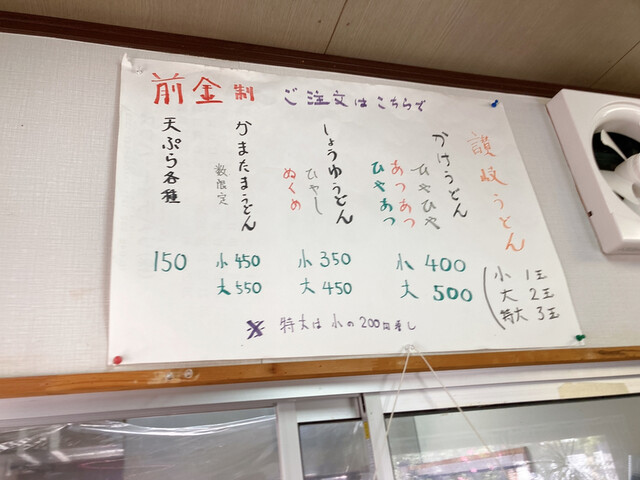 前金制 ご注文はこちらで
讃岐うどん
小 1玉
大 2玉
特大 3玉
かけうどん
ひやひや
あつあつ
ひやあつ
小 400
大 500
しょうゆうどん
ひやし
ぬくめ
小 350
大 450
かまたまうどん
数限定
小 450
大 550
天ぷら各種
150
※ 特大は小の200円増し